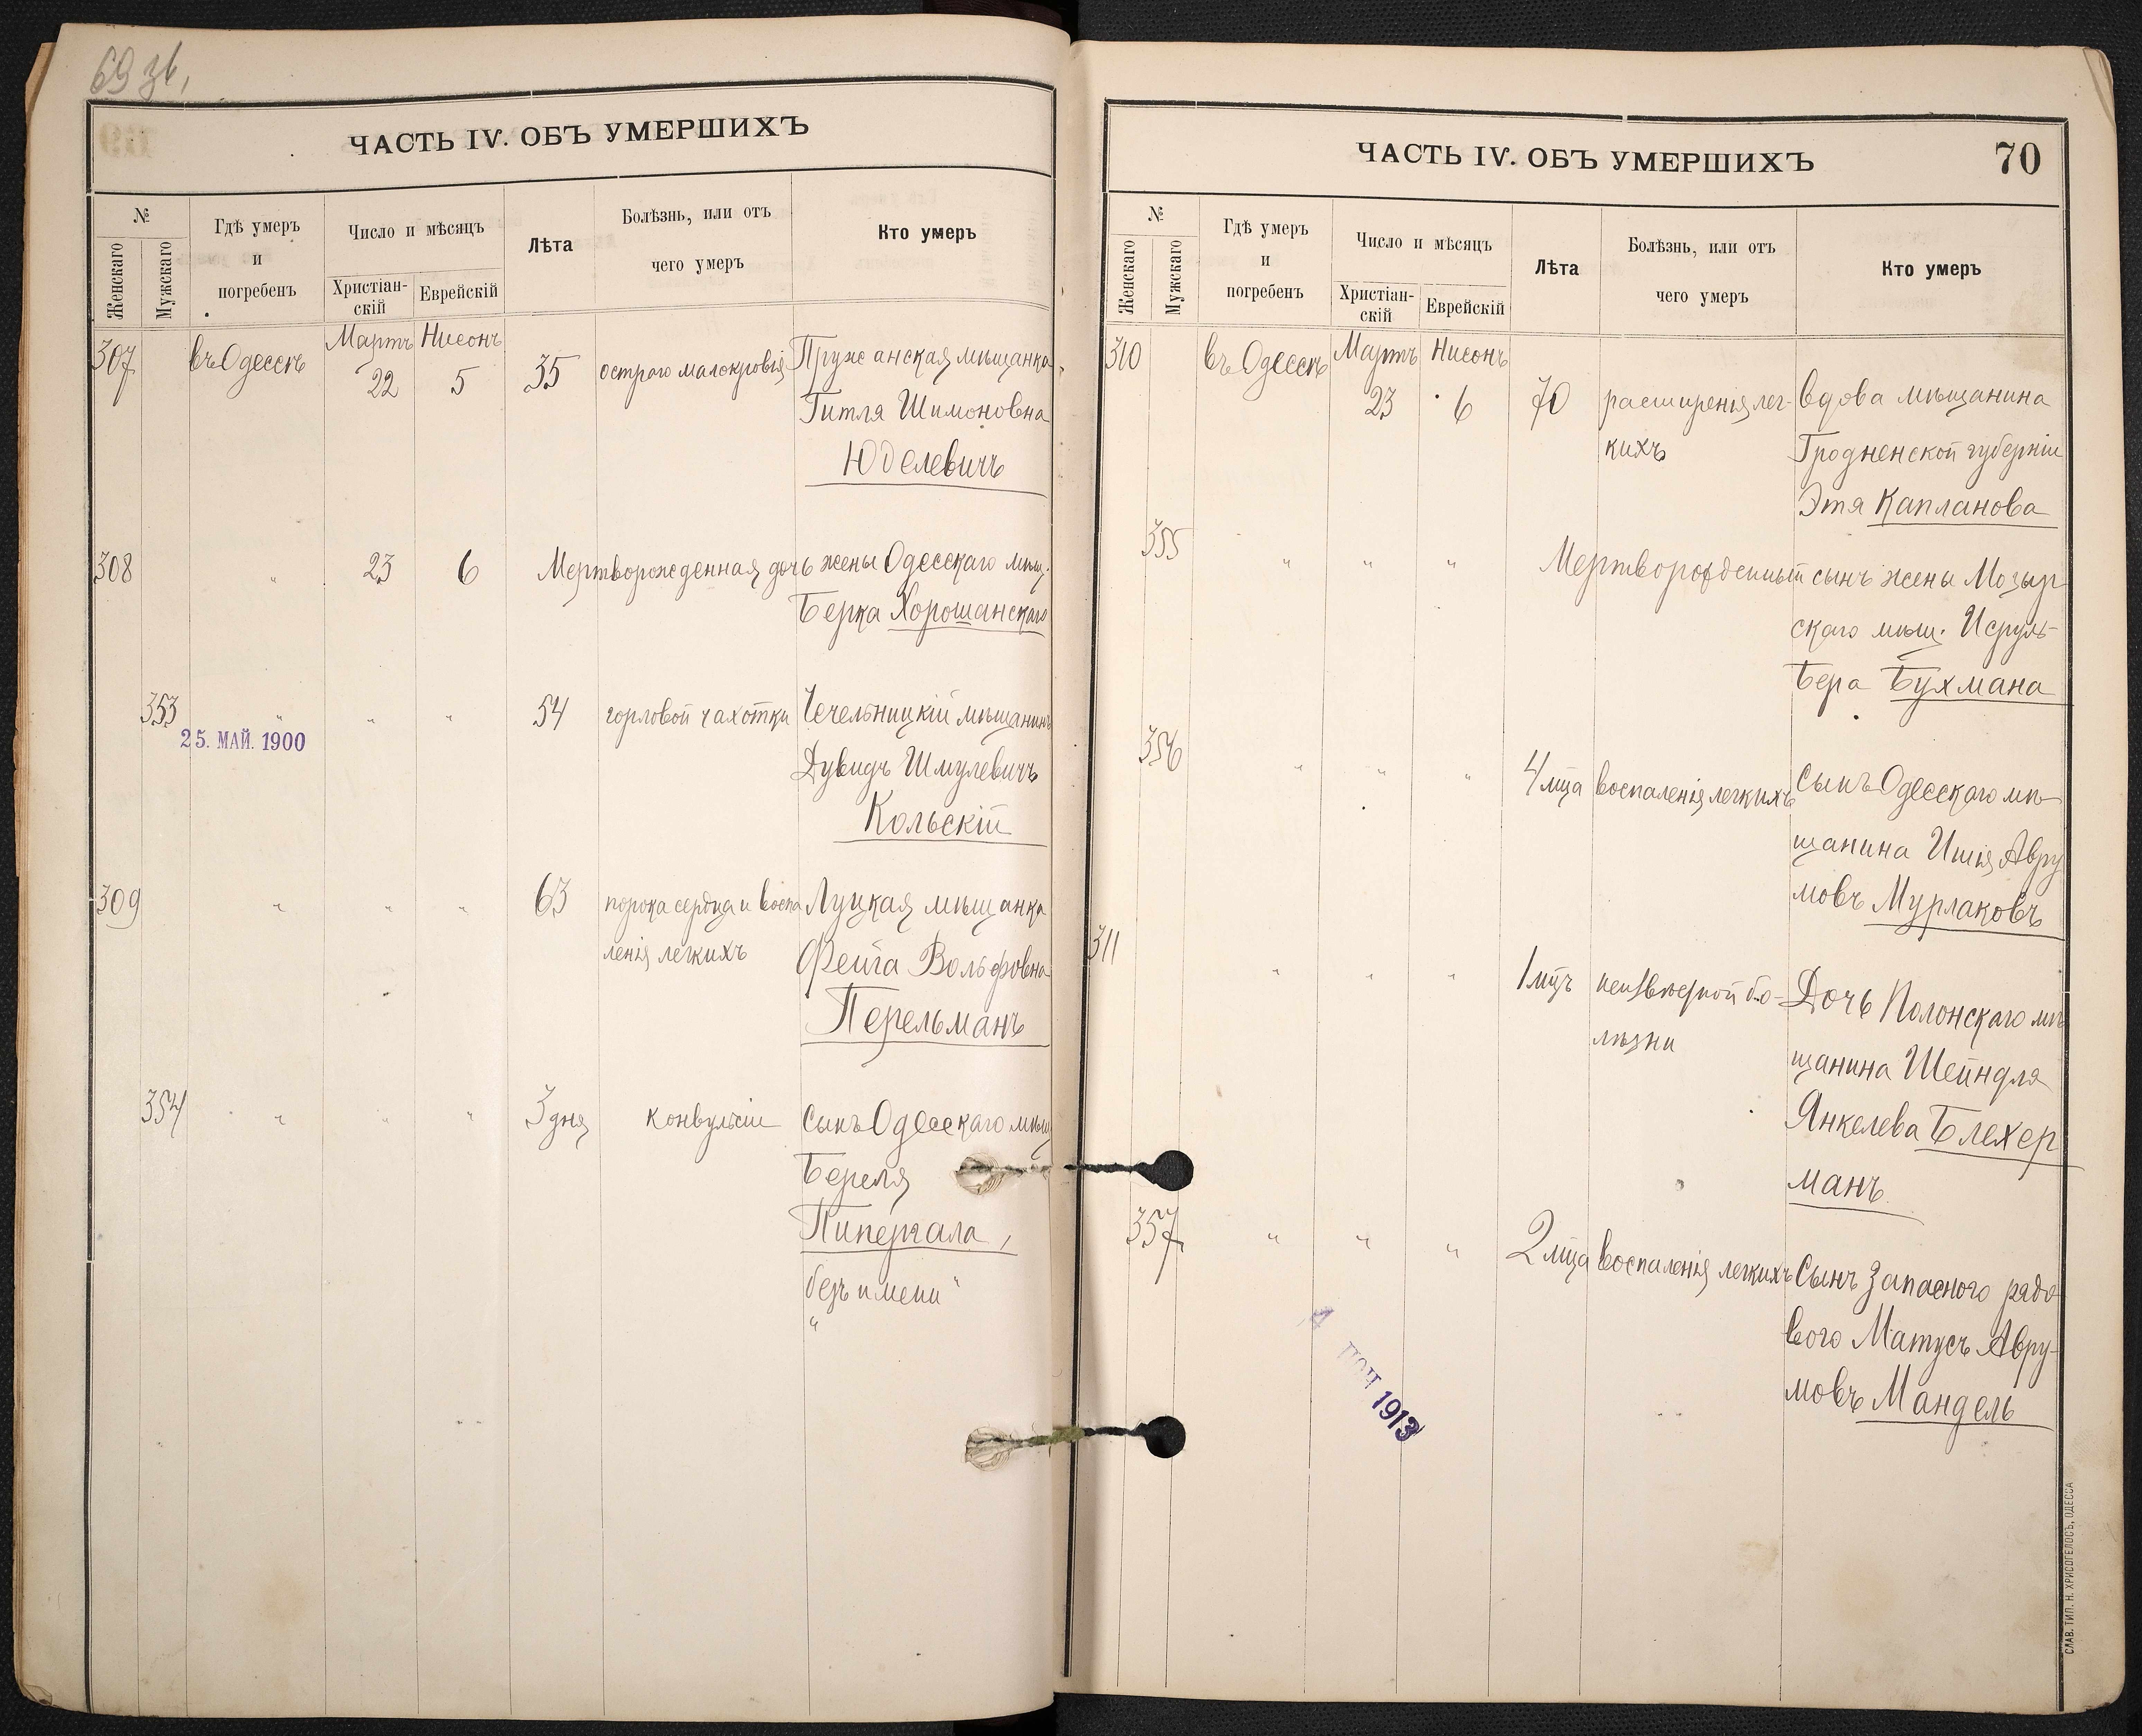 69 зв.
ЧАСТЬ IV. ОБЪ УМЕРШИХЪ
№
Женскаго
Мужскаго
Гдѣ умеръ
и
погребенъ
Число и мѣсяцъ
Христіан-
скій
Еврейскій
Лѣта
Болѣзнь, или отъ
чего умеръ
Кто умеръ
307 въ Одессѣ Мартъ Нисонъ
22 5 35 остраго малокровія Пружанская мѣщанка
Гитля Шимоновна
Юделевичъ
308 " 23 6 Мертворожденная дочь жены Одесскаго мѣщ.
Берка Хорошанскаго
353 " " " 54 горловой чахотки Чечельницкій мѣщанинъ
25. МАЙ. 1900
Дувидъ Шмулевичъ
Кольскій
309 " " " 63 порока сердца и воспа Луцкая мѣщанка
ленія легкихъ Фейга Вольфовна
Перельманъ
354 " " " 3 дня конвульсіи Сынъ Одесскаго мѣщ
Береля
Пипергала,
безъ имени "
"
ЧАСТЬ IV. ОБЪ УМЕРШИХЪ
70
№
Женскаго
Мужскаго
Гдѣ умеръ
и
погребенъ
Число и мѣсяцъ
Христіан-
скій
Еврейскій
Лѣта
Болѣзнь, или отъ
чего умеръ
Кто умеръ
310 въ Одессѣ Мартъ Нисонъ
23 6 70 расширенія лег- Вдова мѣщанина
кихъ Гродненской губерніи
Этя Капланова
355 " " " Мертворожденный сынъ жены Мозыр
скаго мѣщ. Исруль-
Бера Бухмана
356 " " " 4 мца воспаленія легкихъ Сынъ Одесскаго мѣ-
щанина Ишія Авру
мовъ Мурлаковъ
311 " " " 1 мцъ неизвѣстной бо- Дочь Полонскаго мѣ
лѣзни щанина Шейндля
Янкелева Блехер
манъ
357 " " " 2 мца воспаленія легкихъ Сынъ запасного рядо
вого Матусъ Авру-
мовъ Мандель
1913
СЛАВ. ТИП. Н. ХРИСОГЕЛОСЪ, ОДЕССА